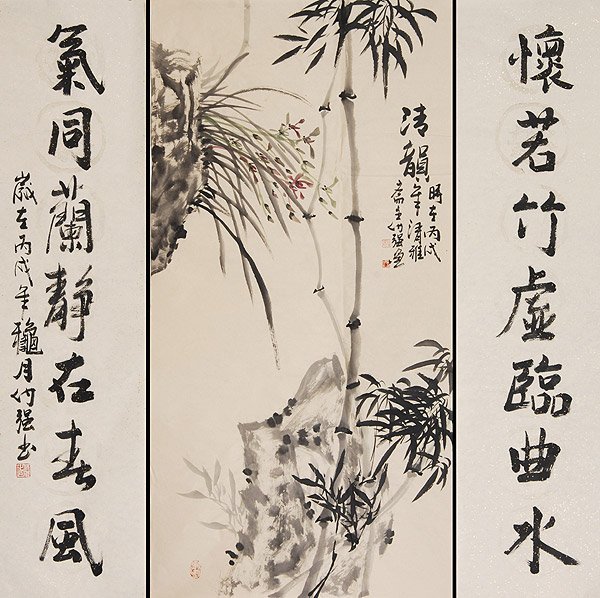 懷若竹虛臨曲水
清韻
時在丙戌
年清雅
齋主何强画
氣同蘭靜在春風
歲在丙戌年龝月何强书